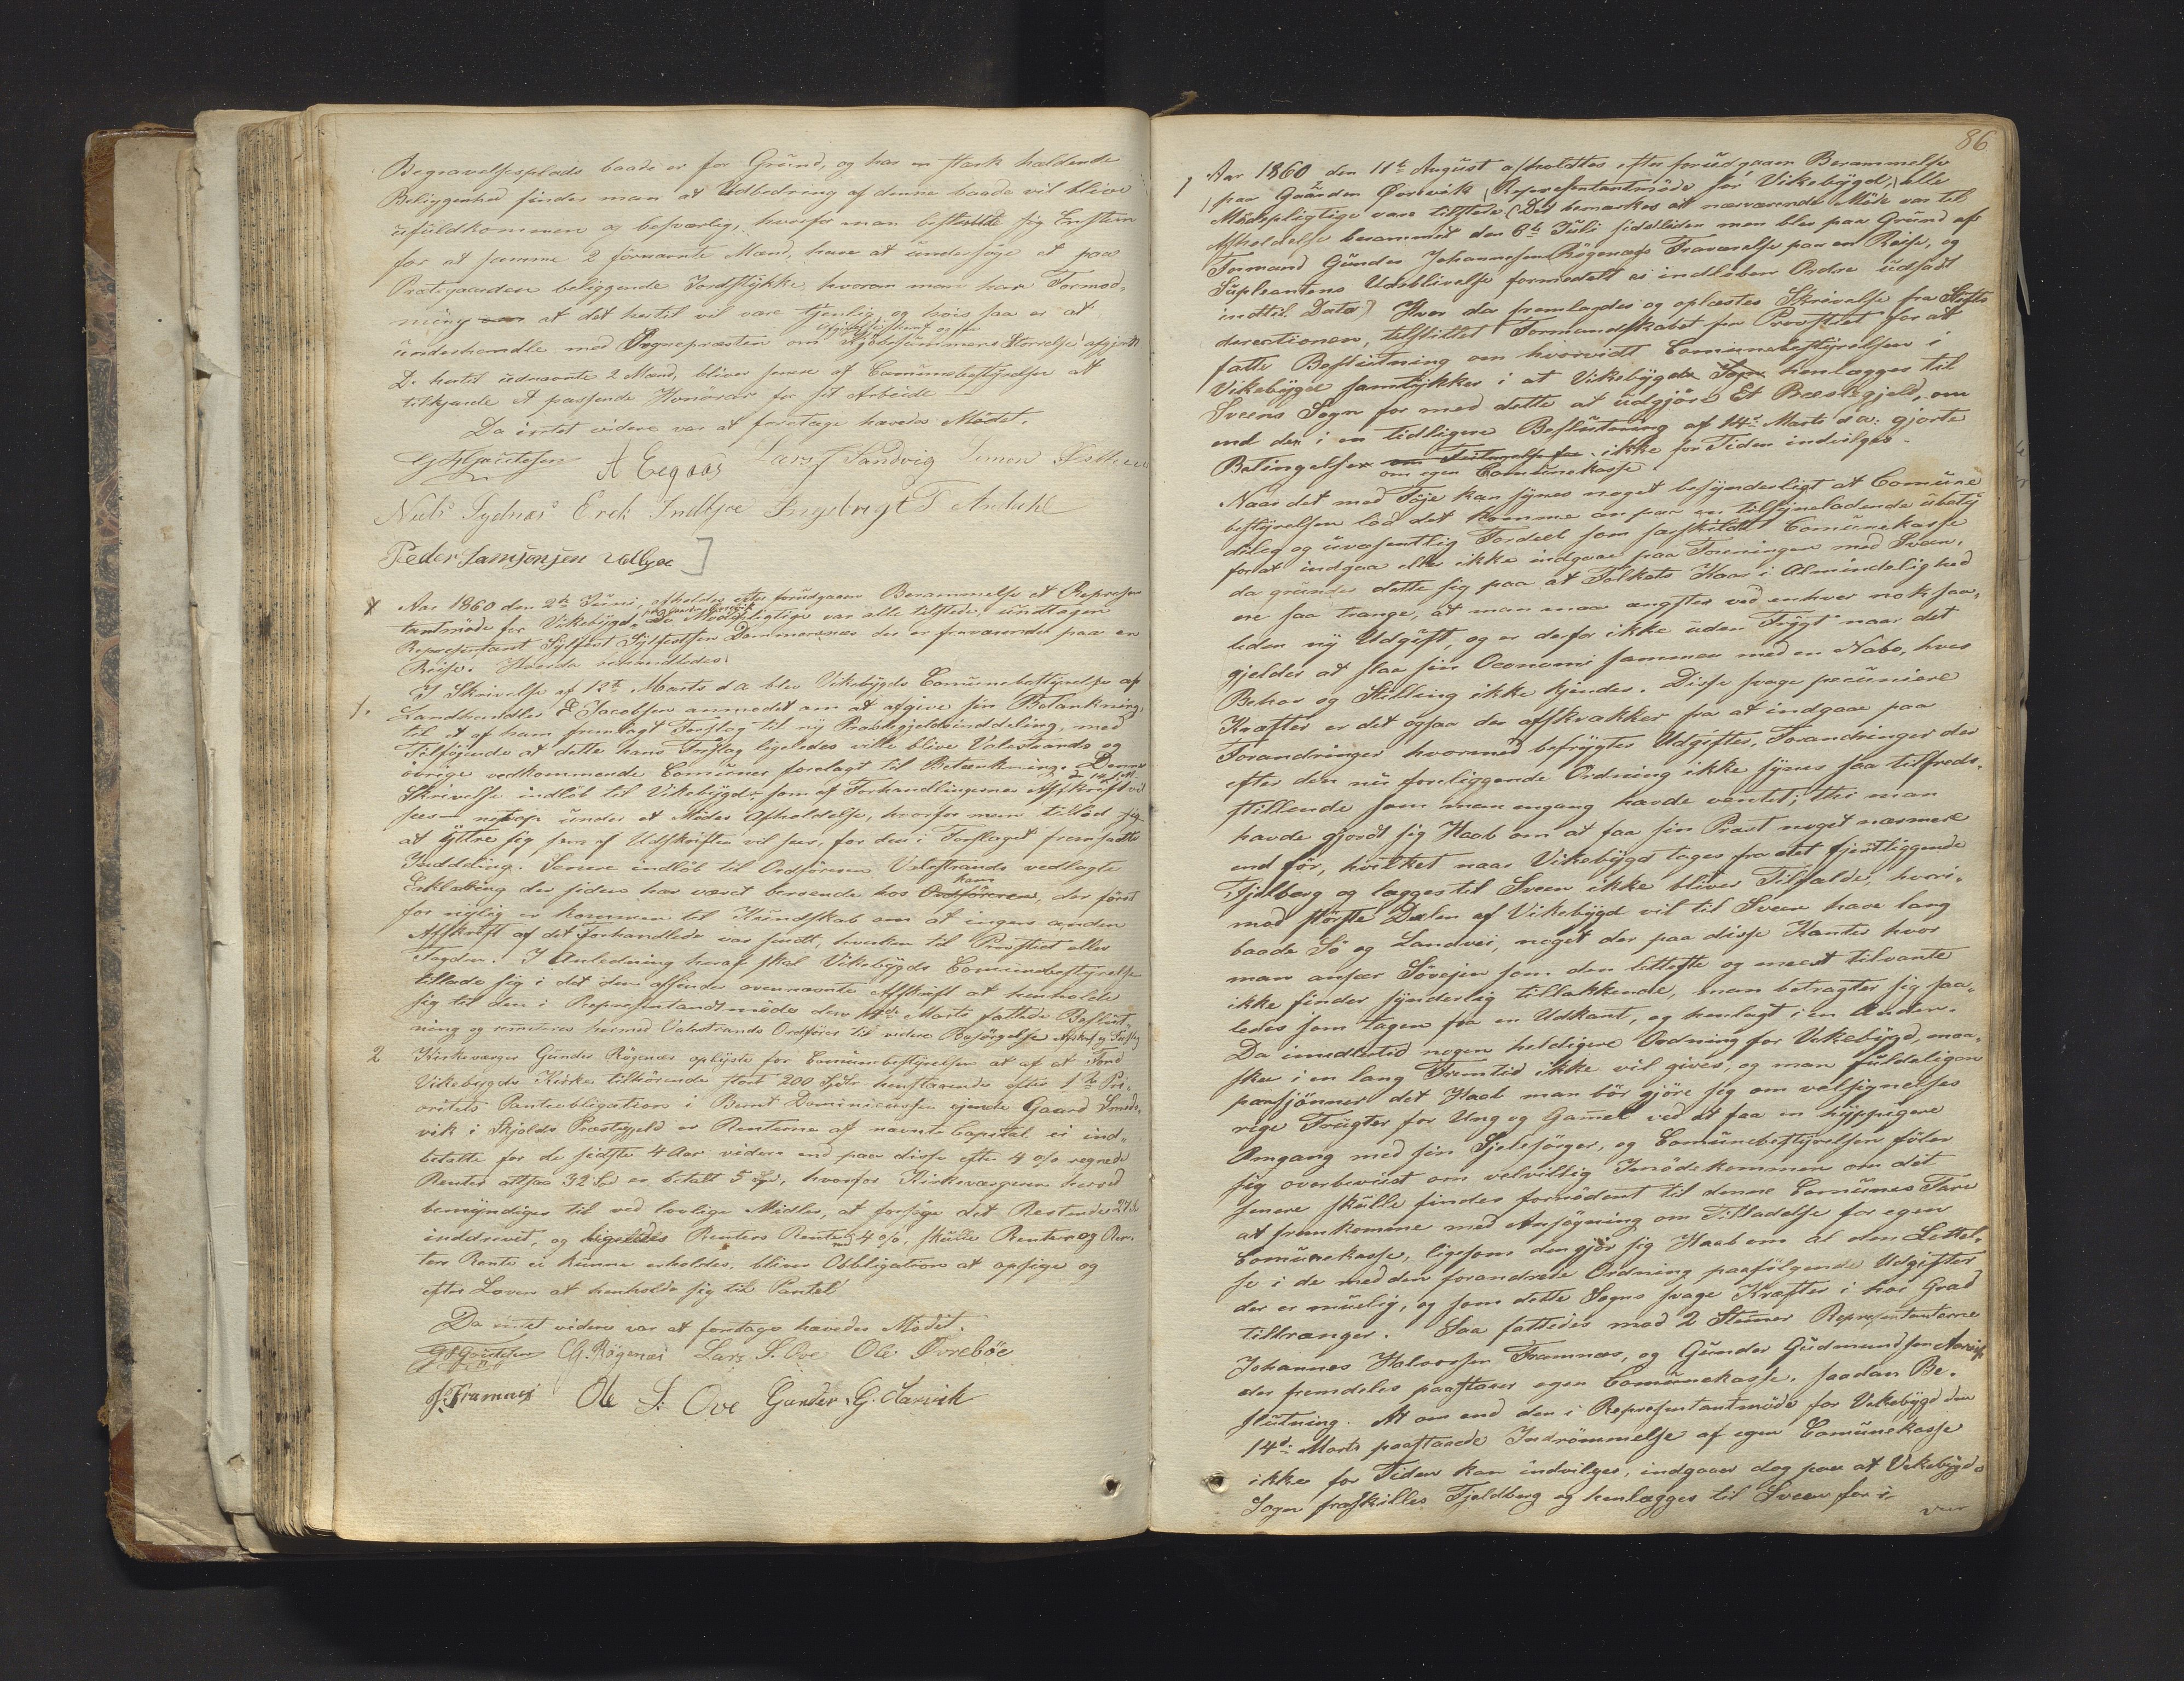 Begravelsesplads baade er for Grund, og har en stærk haldende
Beliggenhed finder man at Udbedring af denne baade vil blive
ufuldkommen og besværlig, hvorfor man besluttede sig
for at samme 2 förnævnte Mænd, have at undersöge et paa
Præstegaarden beliggende Jordstykke, hvorom man har Formod,
ning at det hertil vil være tjenlig, og hvis saa er at
underhandle med Sognepræsten om Kjöbesummens Störrelse
De hertil udnævnte 2 Mænd, bliver senere af Comunebestyrelsen at
tilkjende et passende Honörar for sit Arbeide
Da intet videre var at foretage hævedes Mödet.
A Eegaas Lars J Sandvig Simon
Niels Sydnæs Erek Indbjoe Ingebregt T Andahl
Peder Samsonsen Valbye
Aar 1860 den 2de Juni, afholdes efter forudgaaen Berammelse et Represen
tantmöde for Vikebygd. De Mödepligtige var alle tilstede, undtagen
Representant Sylfæst Sylfæstsen Dommersnæs der er fraværende paa en
Reise. Hvorda behandledes:
1. I Skrivelse af 12te Marts d A blev Vikebygds Comunebestyrelse af
Landhandler E Jacobsen anmodet om at afgive sin Betænkning
til et af ham fremlagt Forslag til ny Præstegjeldsinddeling, med
Tilföjende at dette hans Forslag ligeledes ville blive Valestrands og
övrige vedkommende Comuner forelagt til Betænkning. Denne
Skrivelse indlöb til Vikebygd, som af Forhandlingernes Afskrift vil
sees netop under et Mödes Afholdelse, hvorfor man tillod sig
at yttre sig som af Udskriften vil sees, for den i Forslaget fremsatte
Inddeling. Senere indlöb til Ordföreren Valestrands vedlagte
Erklæring der siden har været beroende hos ham Ordföreren, der först
for nylig er kommen til Kundskab om at ingen anden
Afskrift af det Forhandlede var sendt, hverken til Provstiet eller
Fogden. I Anledning heraf skal Vikebygds Comunebestyrelse
tillade sig i det den afsender ovennævnte Afskrift at henholde
sig til den i Representandtmöde den 14de Marts fattede Beslut
ning og remiteres hermed Valestrands Ordförer til videre Besörgelse
2 Kirkeværger Gunder Rögenæs oplyste for Comunebestyrelsen at af et Fond
Vikebygds Kirke tilhörende stort 200 Spdlr henstaaende efter 1te Pri,
oritets Panteobligation i Bernt Dominicussen ejende Gaard Smeds,
vik i Skjolds Præstegjeld er Renterne af nævnte Capital ei ind,
betalte for de sidste 4 Aar videre end paa disse efter 4 o/o regnede
Renter altsaa 32 Spd er betalt 5 Spd, hvorfor Kirkeværgeren herved
bemyndiges til ved lovlige Midler, at forsöge det Resterende 27 Sp
inddrevet, og ligeledes Renters Rente med 4 o/o, skulde Renter og Ren,
ters Rente ei kunne erholdes, bliver Obbligation at opsige og
efter Loven at henholde sig til Pantet!
Da intet videre var at foretage hævedes Mödet.
G. Rögenæs Lars S. Ove Ole Övreböe
J. Framnæs Ole S. Ove Gunder G. Aarvik
86
1 Aar 1860 den 11te August afholdtes efter forudgaaen Berammelse
paa Gaarden Öorevik Representantmöde for Vikebygd, alle
Mödepligtige vare tilstede (Det bemærkes at nærværende Möde var til
Afholdelse berammet den 6te Juli sidstleden men blev paa Grund af
Formand Gunder Johannesen Rögenæss Fraværelse paa en Reise, og
Supleantens Udeblivelse formedelst ei indlöben Ordre udsadt
indtil Dato) Hvor da fremlagdes og oplæstes Skrivelse fra Stifts
derectionen, tilstillet Formandskabet fra Provstiet for at
fatte Beslutning om hvorvidt Comunebestyrelsen i
Vikebygd samtykker i at Vikebygds Sogn henlægges til
Sveens Sogn for med dette at udgjöre Et Præstegjeld, om
end den i en tidligere Beslutning af 14de Marts d a: gjorte
Betingelse om egen Comunekasse ikke for Tiden indvilges.
Naar det med Föje kan synes noget besynderligt at Comune
bestyrelsen lod det komme an paa en tilsyneladende ubety
delig og uvæsentlig Fordeel som særskildt Comunekasse
for at indgaa eller ikke indgaae paa Foreningen med Sveen,
da grunder dette sig paa at Folkets Kaar i Almindelighed
ere saa trange, at man maa ængstes ved enhver nok saa,
leden ny Udgift, og er derfor ikke uden Frygt naar det
gjelder at slaa sin Oeconomi sammen med en Nabo, hvis
Behov og Stilling ikke kjendes. Disse svage pecuniere
Kræfter er det ogsaa der afskrækker fra at indgaae paa
Forandringer hvormed befrygtes Udgifter, Forandringer der
efter den nu foreliggende Ordning ikke synes saa tilfreds,
stillende som man engang havde ventet; thi man
havde gjordt sig Haab om at faa sin Præst noget nærmere
end för, hvilket naar Vikebygd tages fra det fjerntliggende
Fjelberg og lægges til Sveen ikke bliver Tilfældet, hvori,
mod störste Delen af Vikebygd vil til Sveen have lang
baade Sö og Landvei, noget der paa disse Kanter hvor
man anseer Söveien som den letteste og meest tilvante
ikke finder synderlig tillokkende, man betragter sig saa,
ledes som tagen fra en Udkant, og henlagt i en Anden.
Da imidlertid nogen heldigere Ordning for Vikebygd, maa,
skee i en lang Fremtid ikke vil gives, og man fuldeligen
paaskjönner det Haab man bör gjöre sig om velsignelses
rige Frugter for Ung og Gamel ved at faa en hyppigere
Omgang med sin Sjelesörger, og Comunebestyrelsen föler
sig overbeviist om velvillig Imödekommen om det
senere skulle findes fornödent til denne Comunes Tarv
at fremkomme med Ansögning om Tilladelse for egen
Comunekasse, ligesom den gjör sig Haab om al den Lettel,
se i de med den forandrede Ordning paafölgende Udgifter
der er muelig, og som dette Sogns svage Kræfter i höi Grad
tiltrænger. Saa fattedes mod 2 Stemer Representanterne
Johannes Halvorsen Framnæs, og Gunder Gudmundsen Aarvik
der fremdeles paastaaer egen Comunekasse, saadan Be,
slutning. At om end den i Representantmöde for Vikebygd den
14de Marts paastaaede Indrömmelse af egen Comunekasse
ikke for Tiden kan indvilges, indgaaer dog paa at Vikebygds
Sogn fraskilles Fjeldberg og henlægges til Sveen for i,